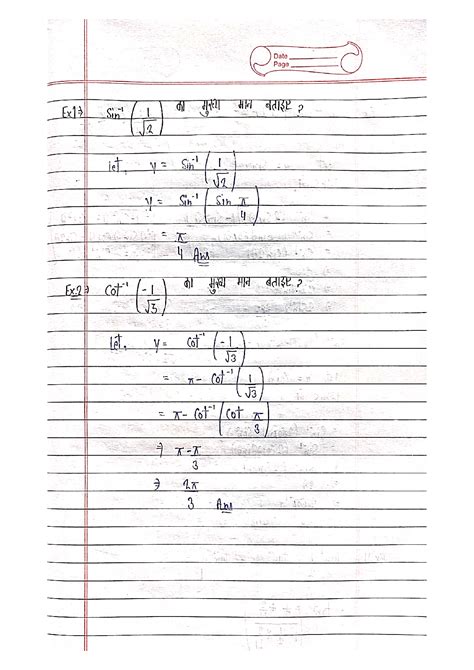 Date
Page
Ex1⇒ Sin⁻¹ (1/√2) का मुख्य मान बताइए ?
let, y = Sin⁻¹ (1/√2)
y = Sin⁻¹ (Sin π/4)
= π/4 Ans
Ex.2⇒ Cot⁻¹ (-1/√3) का मुख्य मान बताइए ?
let, y = Cot⁻¹ (-1/√3)
= π - Cot⁻¹ (1/√3)
= π - Cot⁻¹ (Cot π/3)
⇒ π - π/3
⇒ 2π/3 Ans